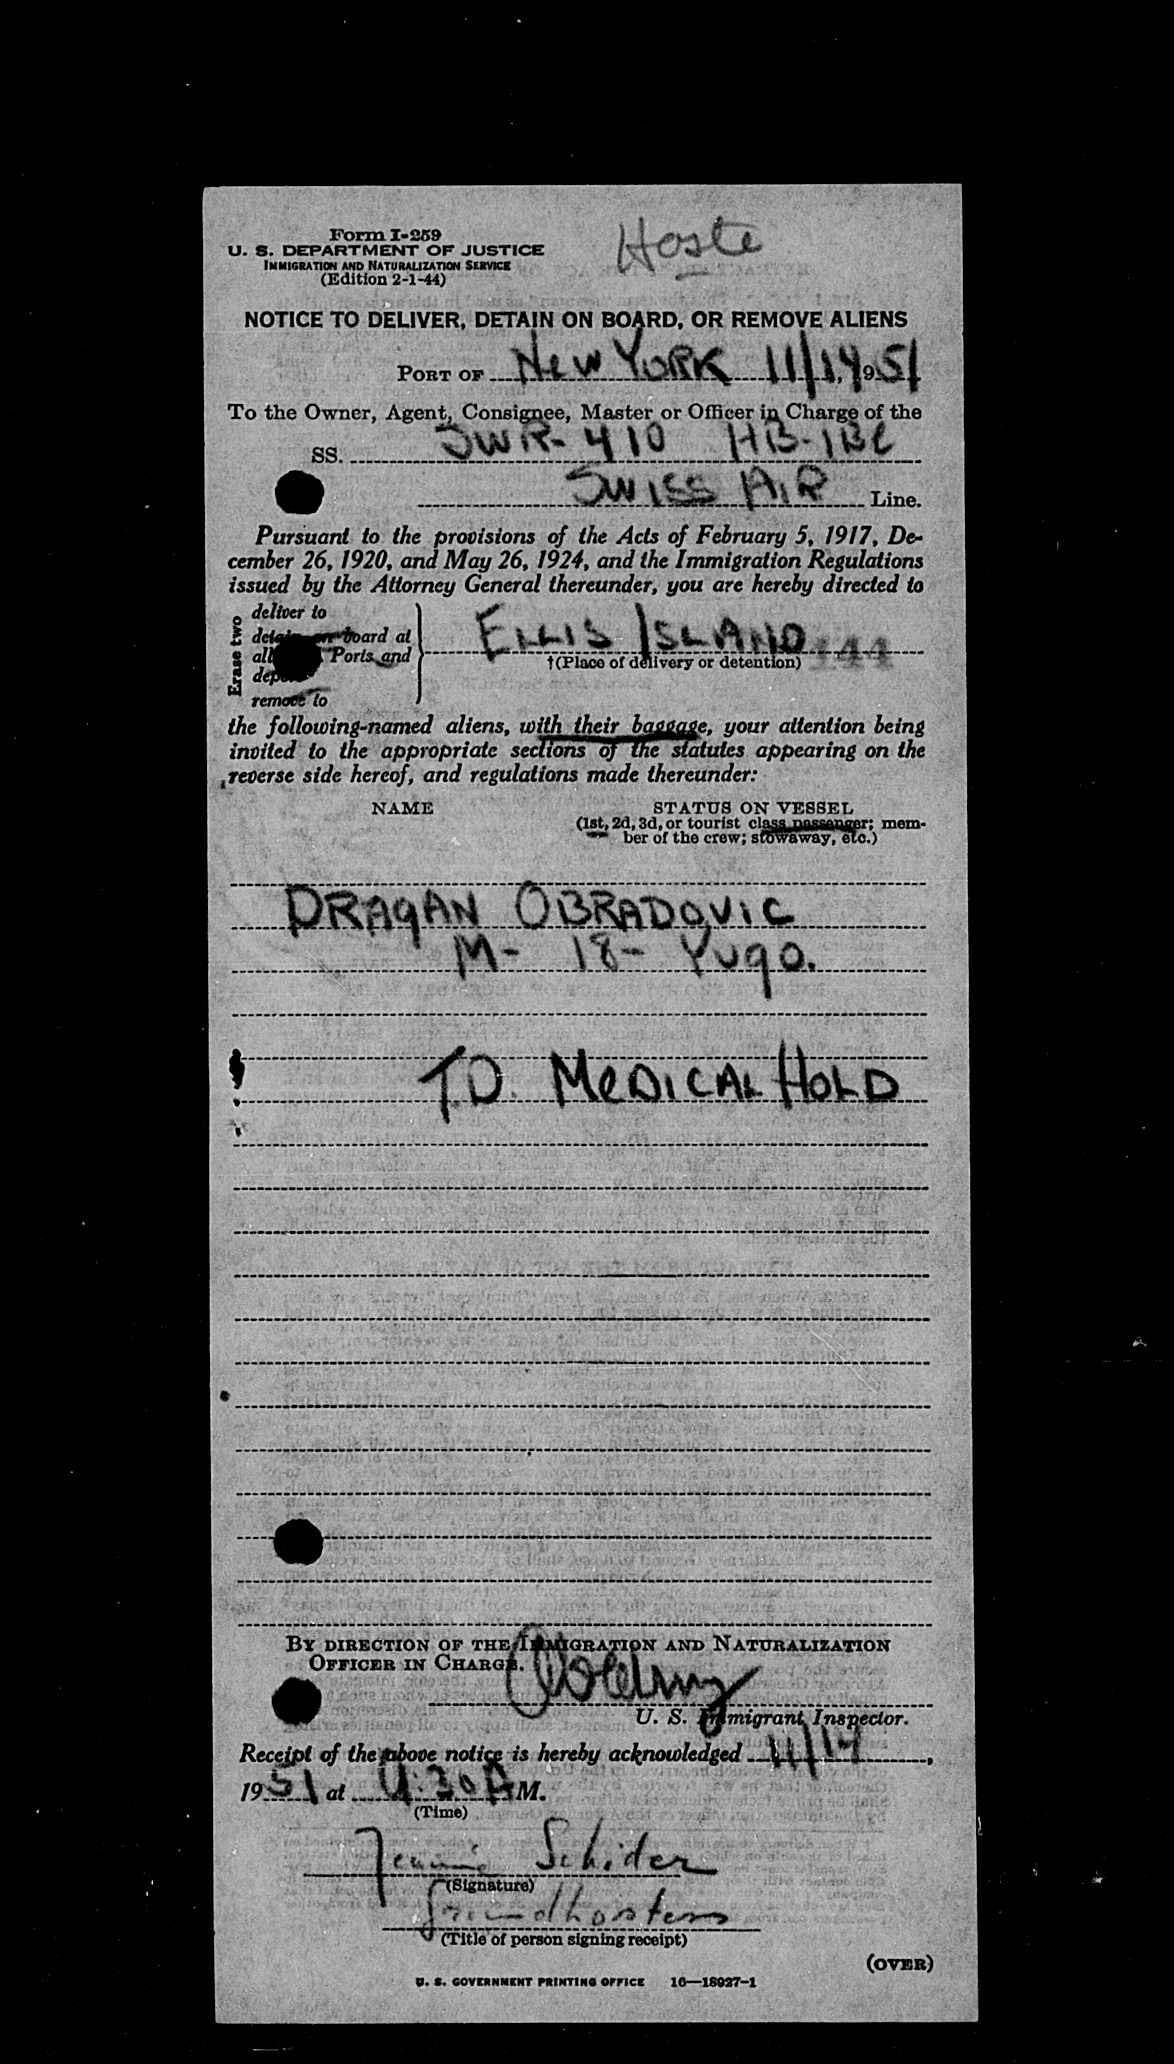 Form I-259
Hoste
U. S. DEPARTMENT OF JUSTICE
IMMIGRATION AND NATURALIZATION SERVICE
(Edition 2-1-44)
NOTICE TO DELIVER, DETAIN ON BOARD, OR REMOVE ALIENS
PORT OF NEW YORK 11/14, 1951
To the Owner, Agent, Consignee, Master or Officer in Charge of the
SS. SWR-410 HB-IBC
SWISS AIR Line.
Pursuant to the provisions of the Acts of February 5, 1917, De-
cember 26, 1920, and May 26, 1924, and the Immigration Regulations
issued by the Attorney General thereunder, you are hereby directed to
Erase two
deliver to
detain on board at
all Ports and
remove to
ELLIS ISLAND 144
†(Place of delivery or detention)
the following-named aliens, with their baggage, your attention being
invited to the appropriate sections of the statutes appearing on the
reverse side hereof, and regulations made thereunder:
NAME STATUS ON VESSEL
(1st, 2d, 3d, or tourist class passenger; mem-
ber of the crew; stowaway, etc.)
DRAGAN OBRADOVIC
M- 18- YUGO.
T.D. MEDICAL HOLD
BY DIRECTION OF THE IMMIGRATION AND NATURALIZATION
OFFICER IN CHARGE.
U. S. Immigrant Inspector.
Receipt of the above notice is hereby acknowledged 11/14,
1951 at 4:30 A M.
(Time)
Schider
(Signature)
Groundhostess
(Title of person signing receipt)
(OVER)
U. S. GOVERNMENT PRINTING OFFICE 16—18927-1